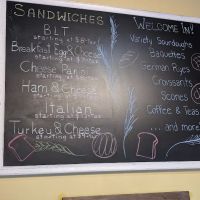 SANDWICHES
BLT
starting at
Breakfast Egg & Cheese
starting at
Cheese Panini
starting at
Ham & Cheese
starting at
Italian
starting at
Turkey & Cheese
starting at
WELCOME IN!
Variety Sourdoughs
Baguettes
German Ryes
Croissants
Scones
Coffee & Teas
... and more!